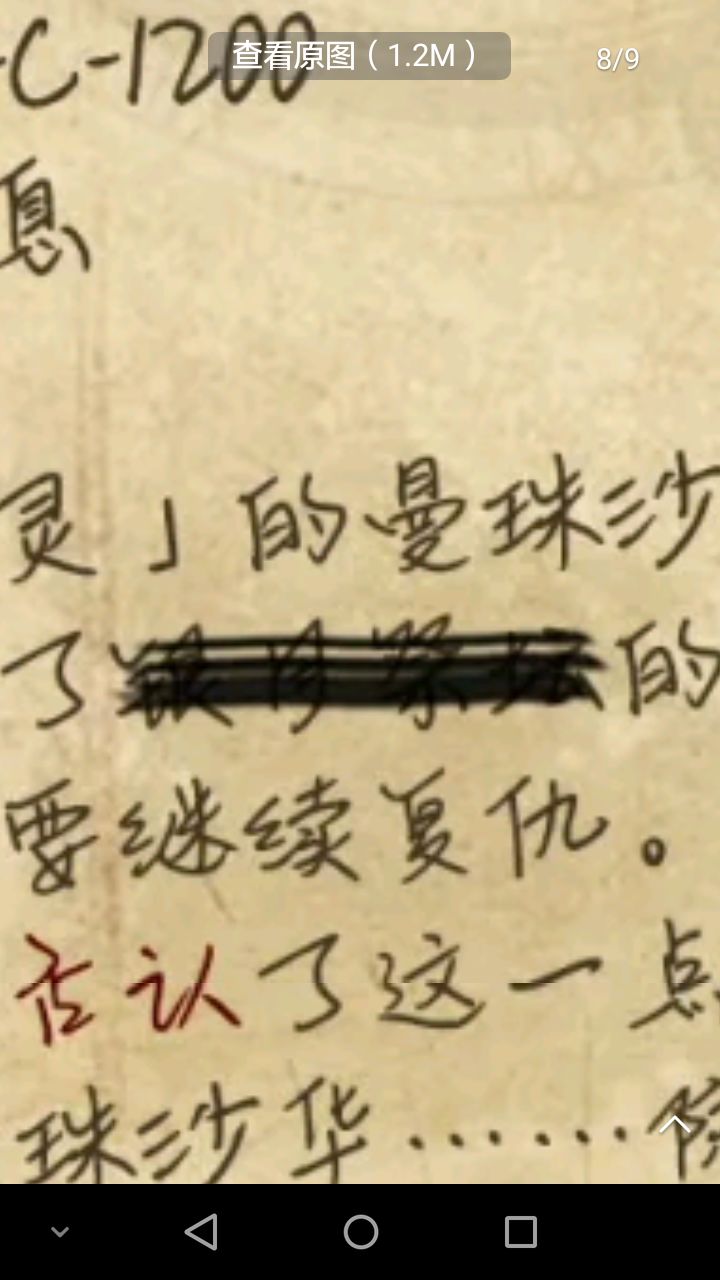 -C-1200
查看原图（1.2M）
8/9
息
灵」的曼珠沙
了银月祭坛的
要继续复仇。
否认了这一点
珠沙华……除